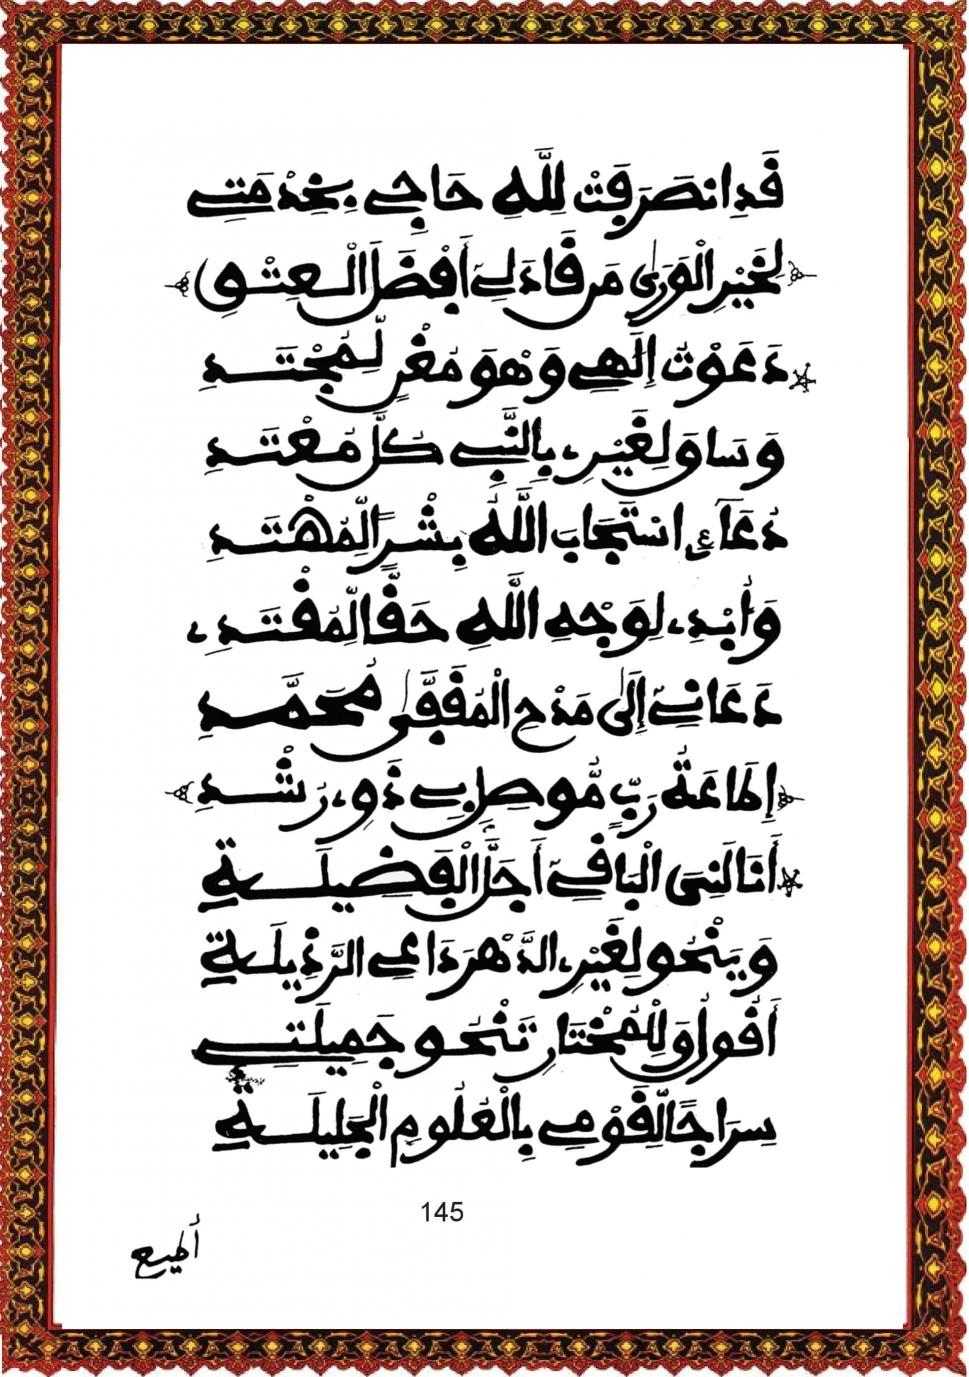 قَدِ انصَرَفَتْ لِلَّهِ حَاجِي بِخِدْمَتِي
لِخَيْرِ الْوَرَىٰ مَن قَادَ لِي أَفْضَلَ الْعِتْقِ
دَعَوْتُ إِلَٰهِي وَهْوَ مُغْنٍ لِّمُجْتَدِ
وَسَاقَ لِغَيْرِ بِالنَّبِي كُلَّ مُعْتَدِ
دُعَائِ اسْتَجَابَ اللَّهُ بِشْرًا لِّمُهْتَدِ
وَأُبْدِ لِوَجْهِ اللَّهِ حَقًّا لِّمُقْتَدِ
دَعَانِي إِلَىٰ مَدْحِ الْمُقَفَّىٰ مُحَمَّدِ
إِطَاعَةُ رَبٍّ مُّوصِلٍ بِي ذَوِ رُشْدِ
أَنَالَنِيَ الْبَاقِي أَجَلَّ الْفَضِيلَةِ
وَيَنْحُو لِغَيْرِ الدَّهْرَ دَاعِي الرَّذِيلَةِ
أَقُولُ وَلِلْمُخْتَارِ تَنْحُو جَمِيلَتِي
سِرَاجًا لِّقَوْمِي بِالْعُلُومِ الْجَلِيلَةِ
145
أُطِيعُ